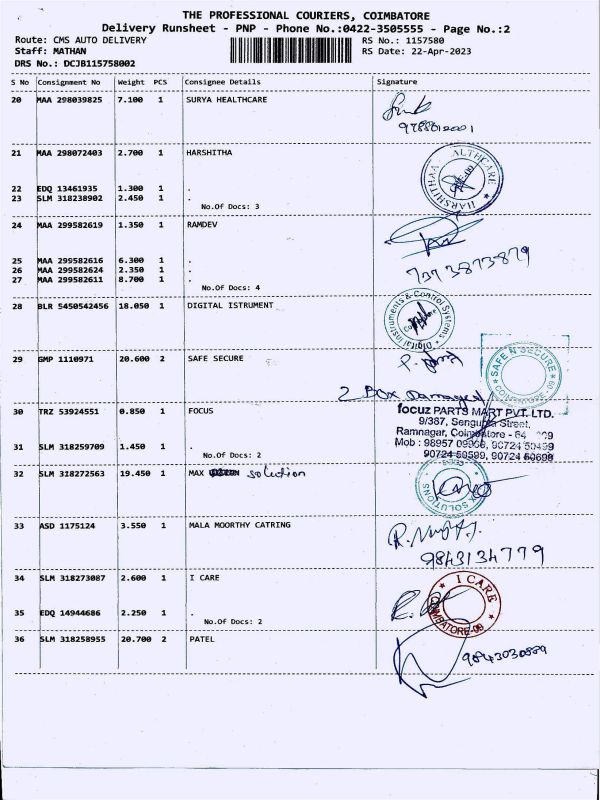 THE PROFESSIONAL COURIERS, COIMBATORE
Delivery Runsheet - PNP - Phone No.:0422-3505555 - Page No.:2
Route: CMS AUTO DELIVERY RS No.: 1157580
Staff: MATHAN RS Date: 22-Apr-2023
DRS No.: DCJB115758002
S No Consignment No Weight PCS Consignee Details Signature
20 MAA 298039825 7.100 1 SURYA HEALTHCARE
21 MAA 298072403 2.700 1 HARSHITHA
HARSHITHAA HEALTHCARE
22 EDQ 13461935 1.300 1 .
23 SLM 318238902 2.450 1 .
No.Of Docs: 3
24 MAA 299582619 1.350 1 RAMDEV
7373873879
25 MAA 299582616 6.300 1 .
26 MAA 299582624 2.350 1 .
27 MAA 299582611 8.700 1 .
No.Of Docs: 4
28 BLR 5450542456 18.050 1 DIGITAL ISTRUMENT
Digital Instruments & Control Systems
29 GMP 1110971 20.600 2 SAFE SECURE
SAFE N SECURE
2 Box Damaged
30 TRZ 53924551 0.850 1 FOCUS
focuz PARTS MART PVT. LTD.
9/387, Sengupta Street,
Ramnagar, Coimbatore -
31 SLM 318259709 1.450 1 .
Mob : 98957 09968, 90724 50499
No.Of Docs: 2
90724 50599, 90724 50698
32 SLM 318272563 19.450 1 MAX solution
SOLUTIONS
33 ASD 1175124 3.550 1 MALA MOORTHY CATRING
9843134779
34 SLM 318273087 2.600 1 I CARE
I CARE
COIMBATORE-09
35 EDQ 14944686 2.250 1 .
No.Of Docs: 2
36 SLM 318258955 20.700 2 PATEL
9843030889